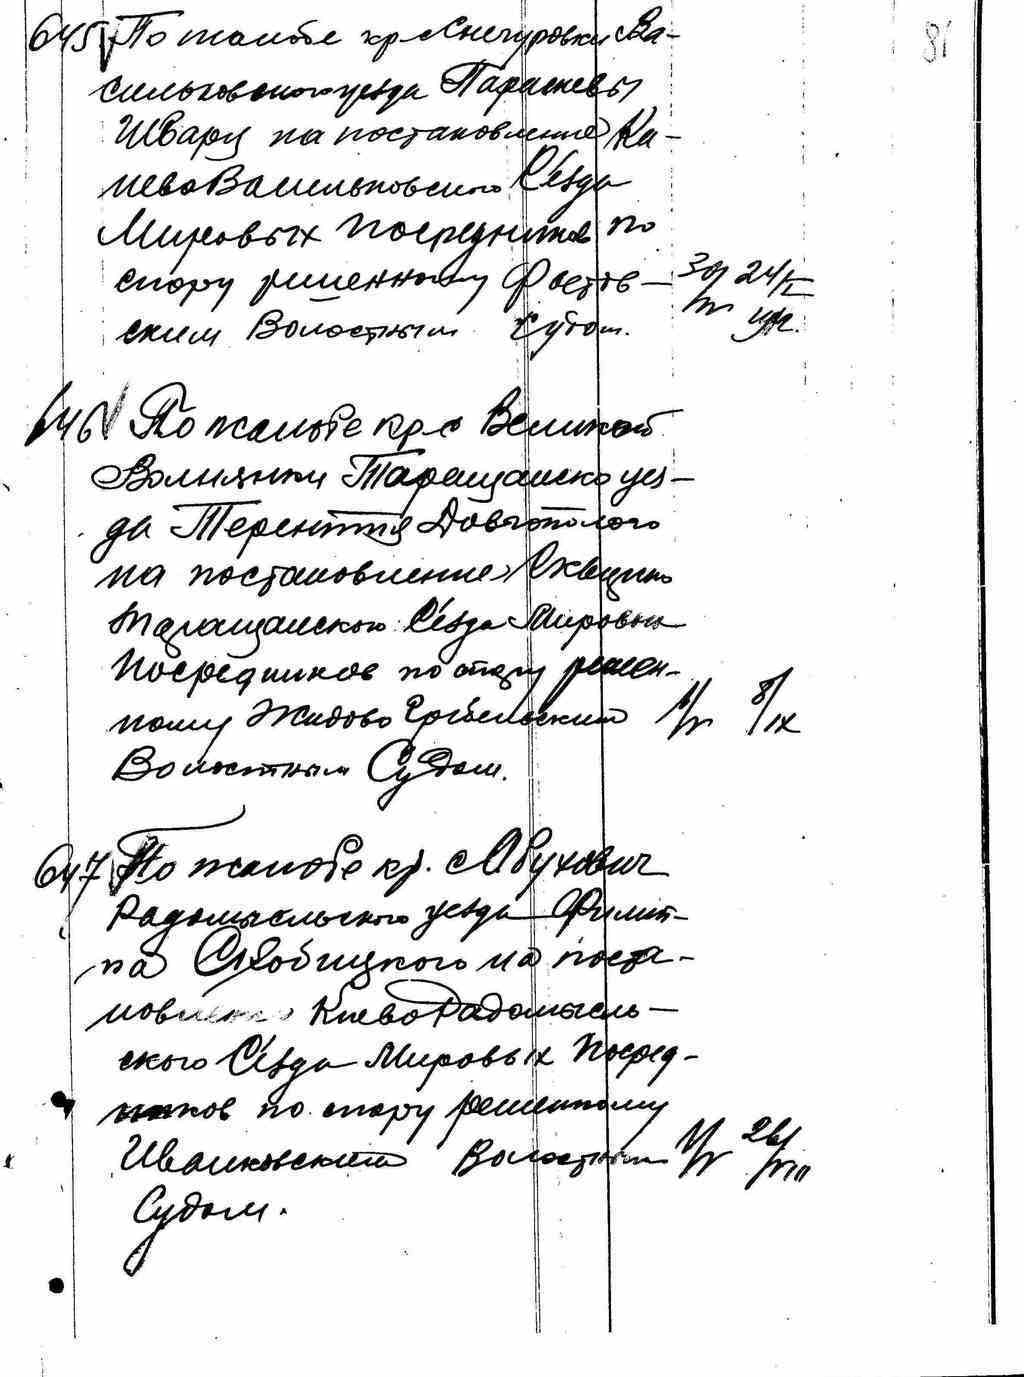 81
645 По жалобе кр с Снегуровки Ва-
сильковского уезда Параскевы
Шварц на постановление Ки-
ево Васильковского Сезда
Мировых Посредников по
спору решенному Фастов-
ским Волостным Судом.
30/IV 24/I
646 По жалобе кр с Великой
Вольнянки Таращанско уез-
да Терентия Довгополого
на постановление Сквиро
Таращанского Сезда Мировых
Посредников по спору решен-
ному Жидово Гребельским
Волостным Судом. 8/IX
647 По жалобе кр. с Обухович
Радомысльского уезда Филип-
па Скобицкого на поста-
новление Киево Радомысль-
ского Сезда Мировых Посред-
ников по спору решенному
Иванковским Волостным 26/VIII
Судом.